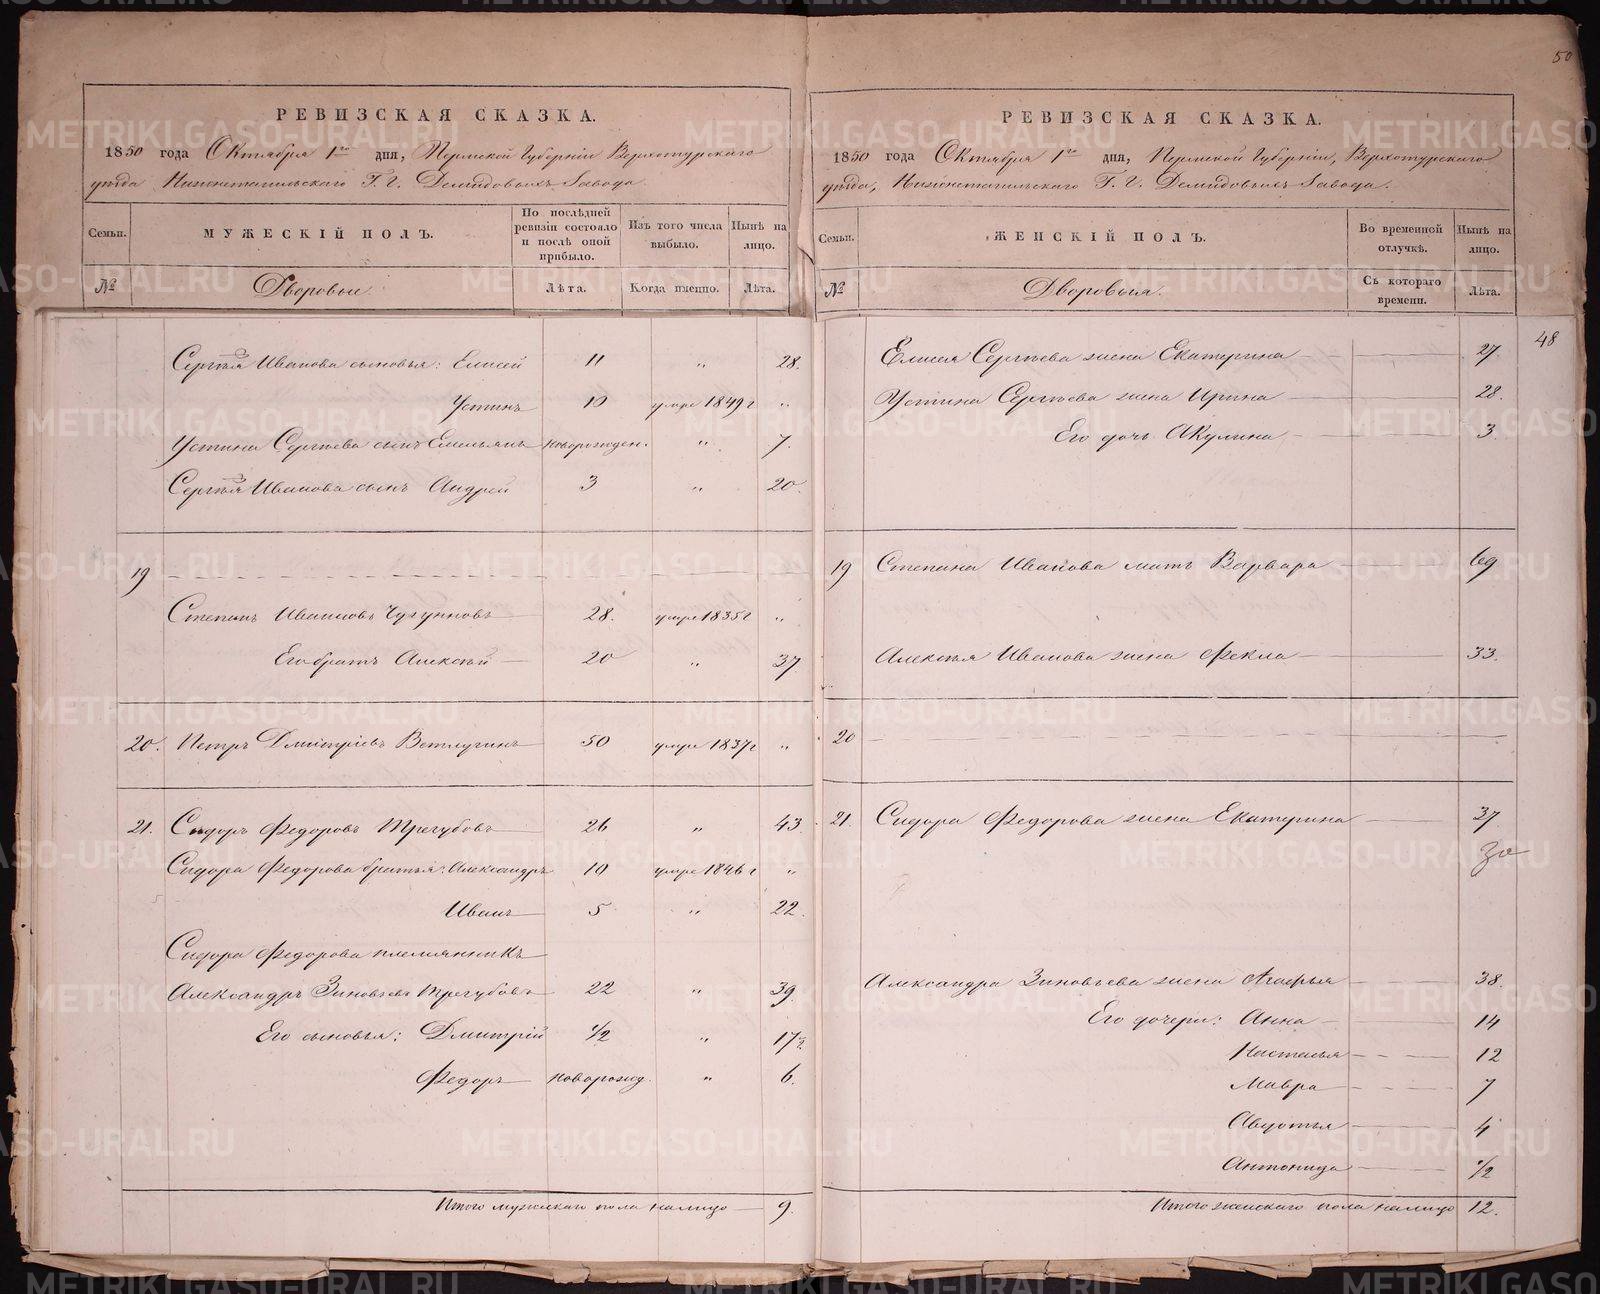 50
РЕВИЗСКАЯ СКАЗКА.
1850 года Октября 1го дня, Пермской Губернии Верхотурскаго
уѣзда Нижнетагильскаго Г. г. Демидовыхъ Завода.
Семьи.
МУЖЕСКІЙ ПОЛЪ.
По послѣдней ревизіи состояло и послѣ оной прибыло.
Изъ того числа выбыло.
Нынѣ на лицо.
№
Дворовые
Лѣта.
Когда именно.
Лѣта.
Сергѣя Иванова сыновья: Елисей 11 „ 28.
Устинъ 10 умре 1849 г „
Устина Сергѣева сынъ Емельянъ новорожден. „ 7.
Сергѣя Иванова сынъ Андрей 3 „ 20.
19
Степанъ Ивановъ Чугунновъ 28. умре 1835 г „
Его братъ Алексѣй 20 „ 37
20. Петръ Дмитріевъ Ветлугинъ 50 умре 1837 г „
21. Сидоръ Федоровъ Трегубовъ 26 „ 43.
Сидора Федорова братья: Александръ 10 умре 1846 г „
Иванъ 5 „ 22.
Сидора Федорова племянникъ
Александръ Зиновьевъ Трегубовъ 22 „ 39.
Его сыновья: Дмитрій 1/2 „ 17 1/2
Федоръ новорожд. „ 6.
Итого мужескаго пола налицо 9.
РЕВИЗСКАЯ СКАЗКА.
1850 года Октября 1го дня, Пермской Губерніи, Верхотурскаго
уѣзда, Нижнетагильскаго Г. г. Демидовыхъ Завода.
Семьи.
ЖЕНСКІЙ ПОЛЪ.
Во временной отлучкѣ.
Нынѣ на лицо.
№
Дворовыя.
Съ котораго времени.
Лѣта.
48
Елисея Сергѣева жена Екатерина 27
Устина Сергѣева жена Ирина 28.
Его дочь Акулина 3.
19 Степана Иванова мать Варвара 69
Алексѣя Иванова жена Фекла 33.
20
21. Сидора Федорова жена Екатерина 37
Александра Зиновьева жена Агафья 38.
Его дочери: Анна 14
Настасья 12
Мавра 7
Авдотья 4
Антонида 1/2
Итого женскаго пола налицо 12.
METRIKI.GASO-URAL.RU